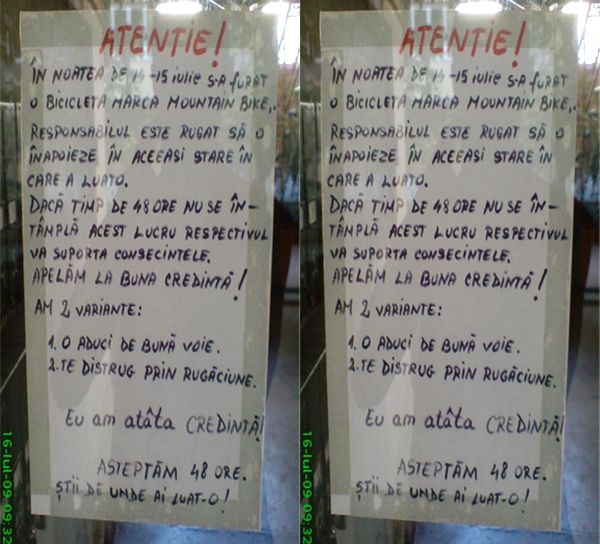 ATENȚIE!
ÎN NOATEA DE 14-15 iulie s-A furAT
O BICICLETA MARCA MOUNTAIN BIKE,.
RESPONSABILUL ESTE RUGAT SĂ O
ÎNAPOIEZE ÎN ACEEAȘI STARE ÎN
CARE A LUATO.
DACĂ TIMP DE 48 ORE NU SE ÎN-
TÂMPLĂ ACEST LUCRU RESPECTIVUL
VA SUPORTA CONSECINTELE.
APELĂM LA BUNA CREDINTĂ!
AM 2 VARIANTE:
1. O ADUCI DE BUNĂ VOIE.
2. TE DISTRUG PRIN RUGĂCIUNE.
Eu am atâta CREDINTĂ!
ASTEPTĂM 48 ORE.
ȘTII DE UNDE AI LUAT-O!
16-Iul-09 09:32
ATENȚIE!
ÎN NOATEA DE 14-15 iulie s-A furAT
O BICICLETA MARCA MOUNTAIN BIKE,.
RESPONSABILUL ESTE RUGAT SĂ O
ÎNAPOIEZE ÎN ACEEAȘI STARE ÎN
CARE A LUATO.
DACĂ TIMP DE 48 ORE NU SE ÎN-
TÂMPLĂ ACEST LUCRU RESPECTIVUL
VA SUPORTA CONSECINTELE.
APELĂM LA BUNA CREDINTĂ!
AM 2 VARIANTE:
1. O ADUCI DE BUNĂ VOIE.
2. TE DISTRUG PRIN RUGĂCIUNE.
Eu am atâta CREDINTĂ!
ASTEPTĂM 48 ORE.
ȘTII DE UNDE AI LUAT-O!
16-Iul-09 09:32